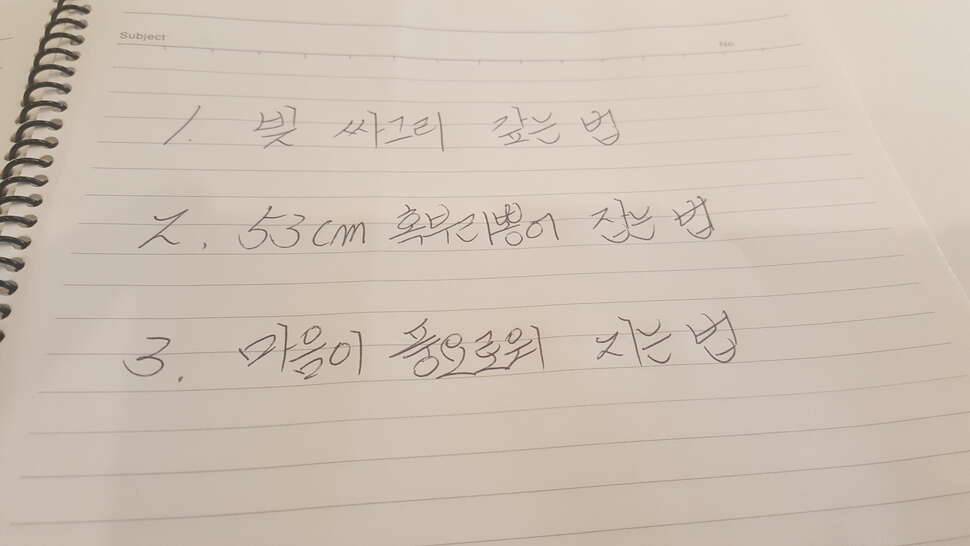 Subject
No.
1. 빚 싸그리 갚는 법
2. 53cm 혹부리뽕이 잡는 법
3. 마음이 풍요로워 지는 법